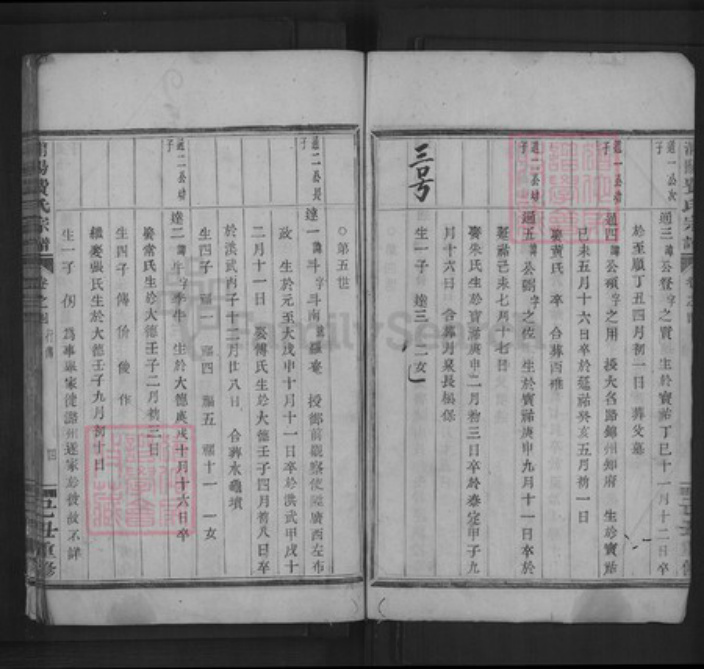 通一公次子
通三諱公督字之實 生於寶祐丁巳十一月十二日卒
於至順丁丑四月初一日 葬父墓
通一公幼子
通四諱公碩字之用 授大名路錦州知府 生於寶祐
己未五月十六日卒於延祐癸亥五月初一日
娶黃氏 卒 合葬西
通二公幼子
通五諱公弼字之佐 生於寶祐庚申九月十一日卒於
延祐己未七月十七日
娶朱氏生於寶祐庚申二月初三日卒於泰定甲子九
月十六日 合葬月
生一子 達三 二女
三号
○第五世
通二公長子
達一諱斗字斗南 授都前觀察使陞廣西左布
政 生於元至大戊申十月十一日卒於洪武甲戌十
二月十一日 娶傅氏生於大德壬子四月初八日卒
於洪武丙子十二月廿八日 合葬水
生四子 福一 福四 福五 福十一 一女
通二公幼子
達二諱牛字季牛 生於大德庚戌十月十六日卒
娶常氏生於大德壬子二月初三日
生四子 傅 份 俊 作
繼娶張氏生於大德壬子九月初十日
生一子 伢 為事嚴家徙潞州遂家於彼故不詳
費氏宗譜
卷之
四
己丑重修